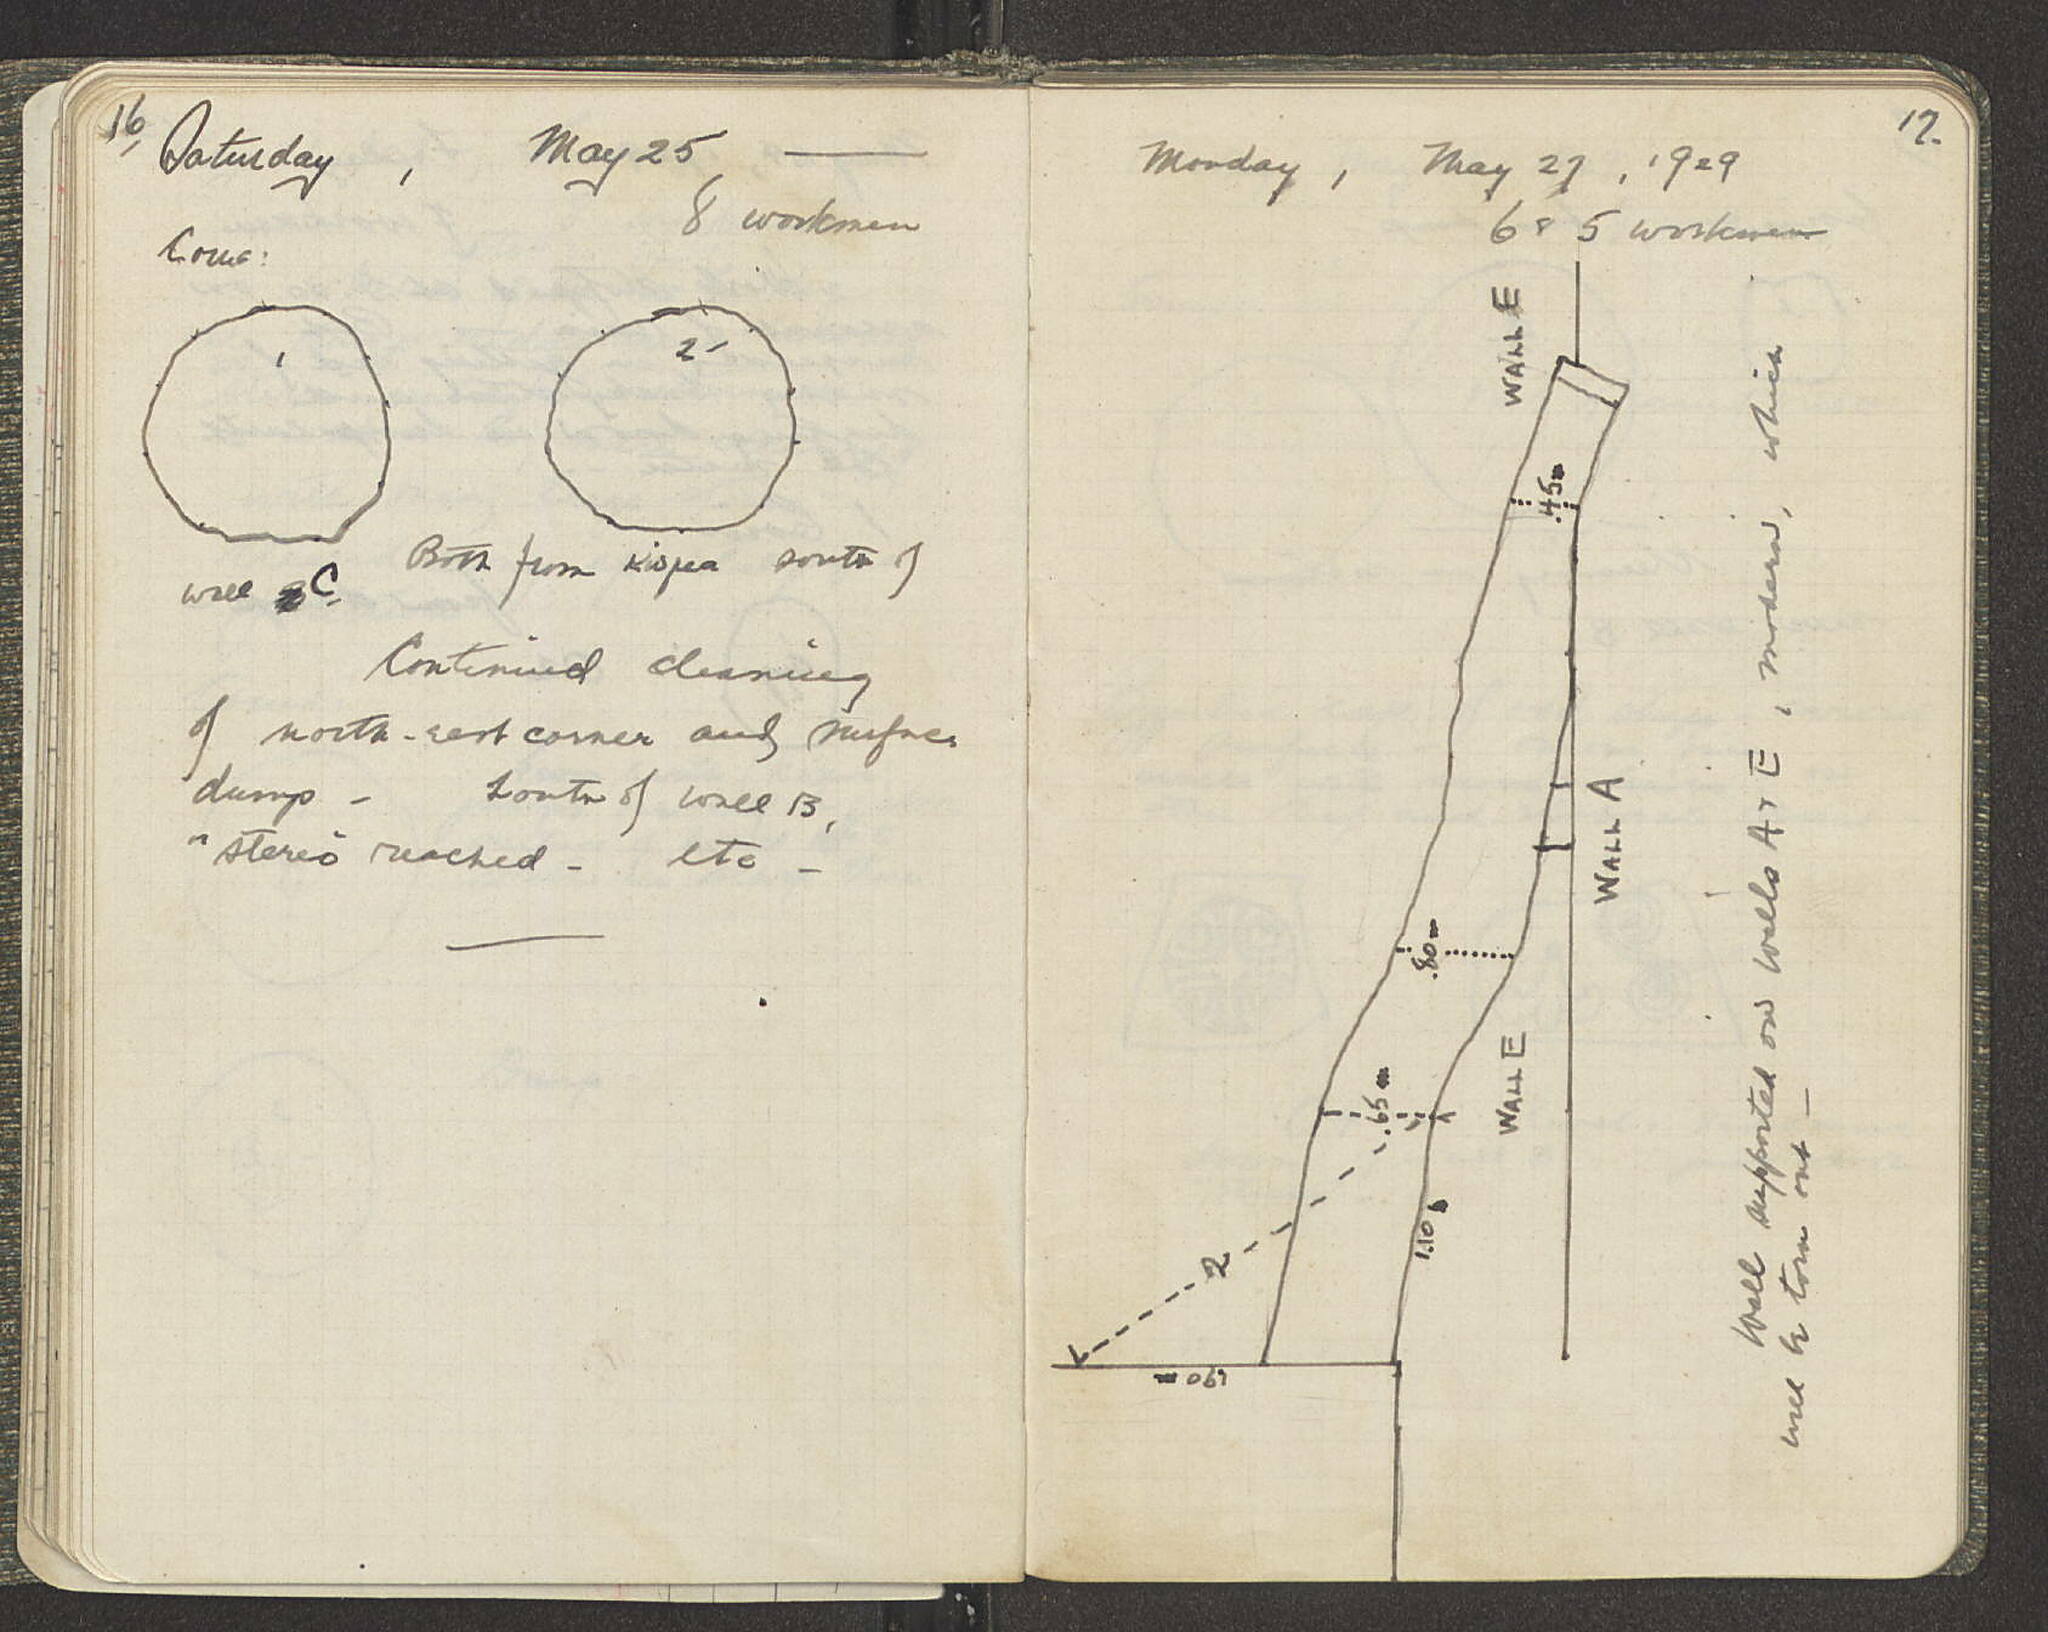 16,
Saturday, May 25, —
8 workmen
Coins:
1
2
Both from κισμα south of
wall C.
Continued cleaning
of north-east corner and surface
dump - South of wall B,
"stereo" reached - etc -
17.
Monday, May 27, 1929
6 & 5 workmen
WALL E
.45m
WALL A
.80m
WALL E
.65m
1.10
2
.90 m
Wall supported on walls A & E, modern, which
will be torn out -